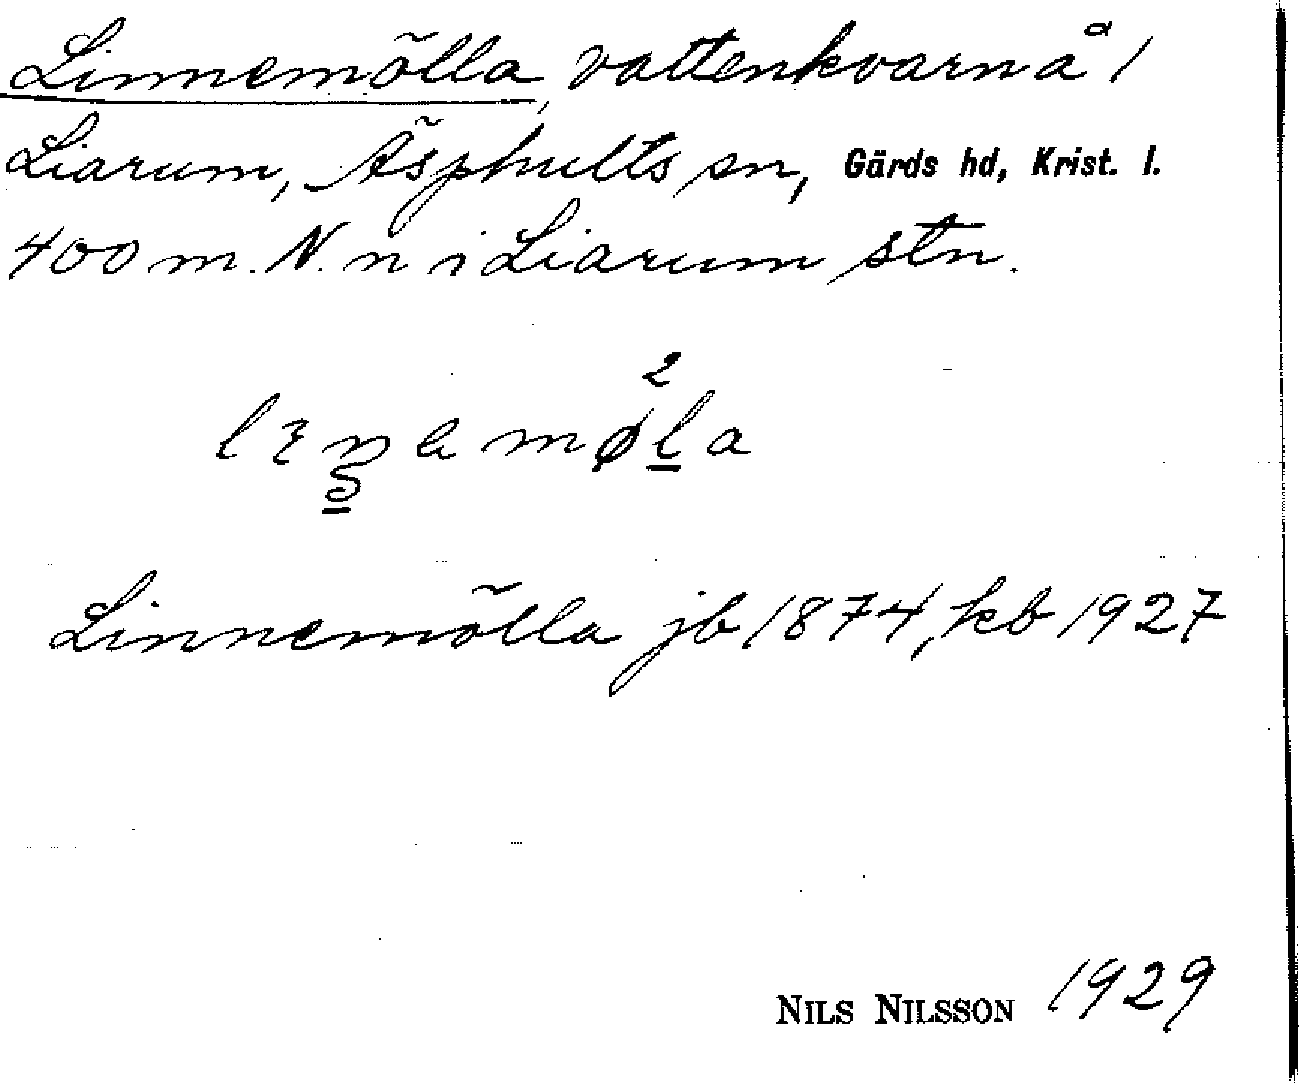 Linnemölla, vattenkvarn å 1
Liarum, Äsphults sn, Gärds hd, Krist. l.
400 m. N. n i Liarum stn.
Linnemölla jb 1874, kb 1927
NILS NILSSON 1929